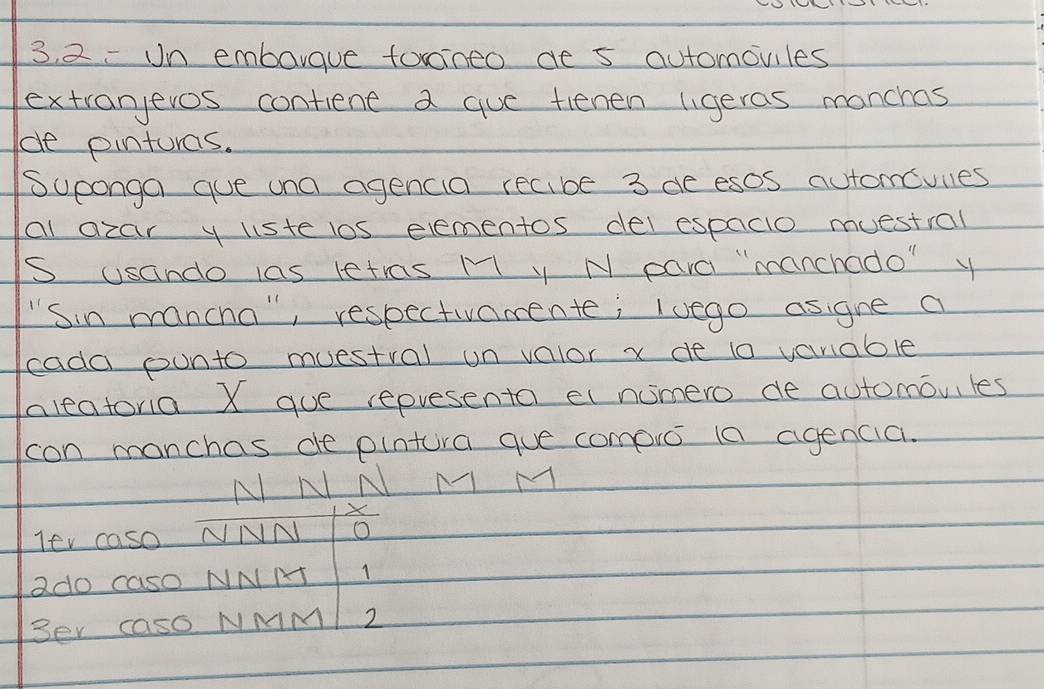 3.2- Un embarque foráneo de 5 automóviles
extranjeros contiene 2 que tienen ligeras manchas
de pinturas.
Suponga que una agencia recibe 3 de esos automóviles
al azar y liste los elementos del espacio muestral
S usando las letras M y N para "manchado" y
"Sin mancha", respectivamente; luego asigne a
cada punto muestral un valor x de la variable
aleatoria X que representa el número de automóviles
con manchas de pintura que compró la agencia.
N N N M M
x
1er caso NNN 0
2do caso NNM 1
3er caso NMM 2